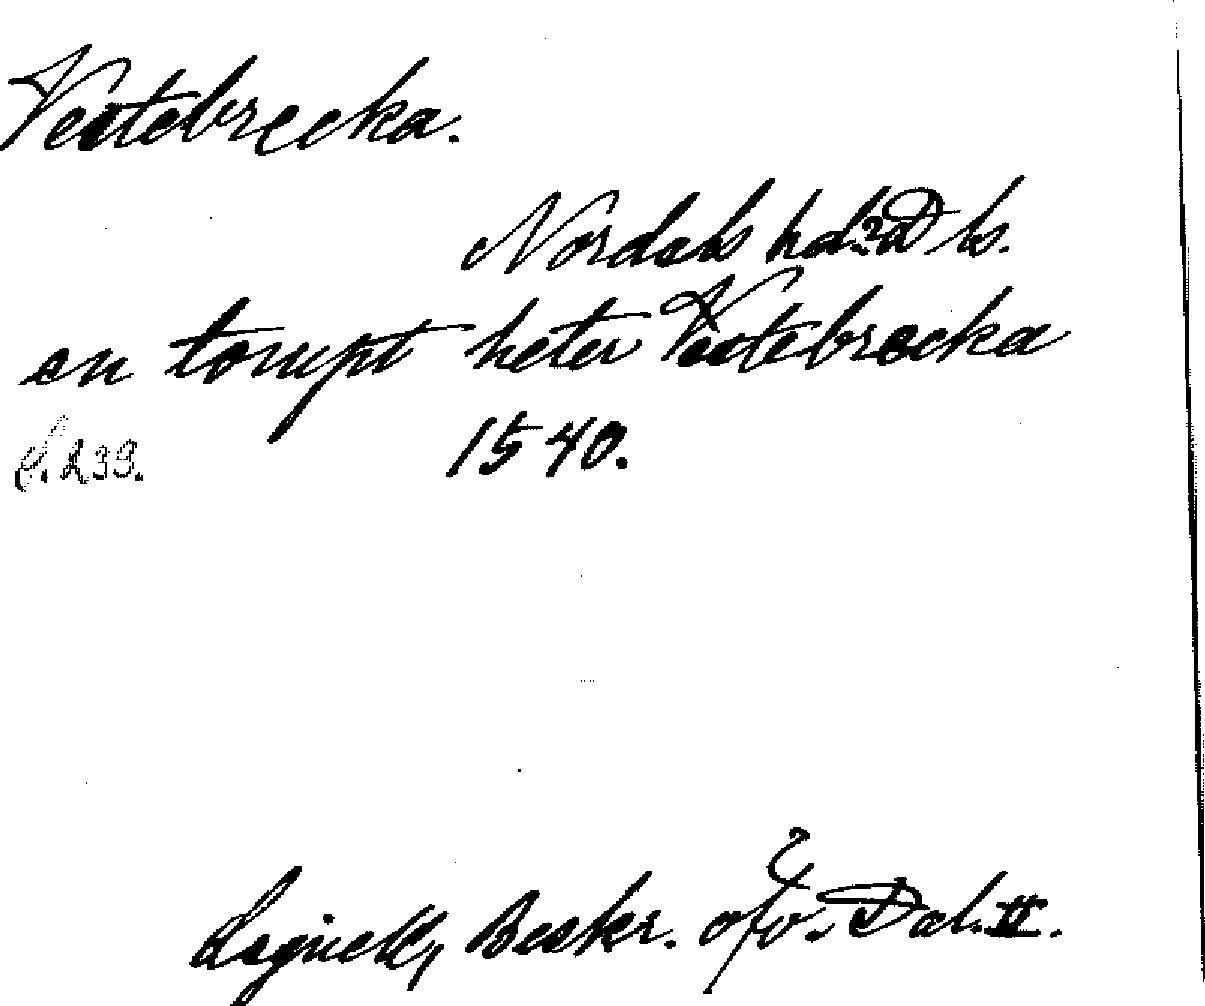 Vestebrecka.
Nordals hd. D ls.
en tompt heter Vestebrecka
S. 239. 1540.
Lignell, Beskr. öfv. Dal. II.